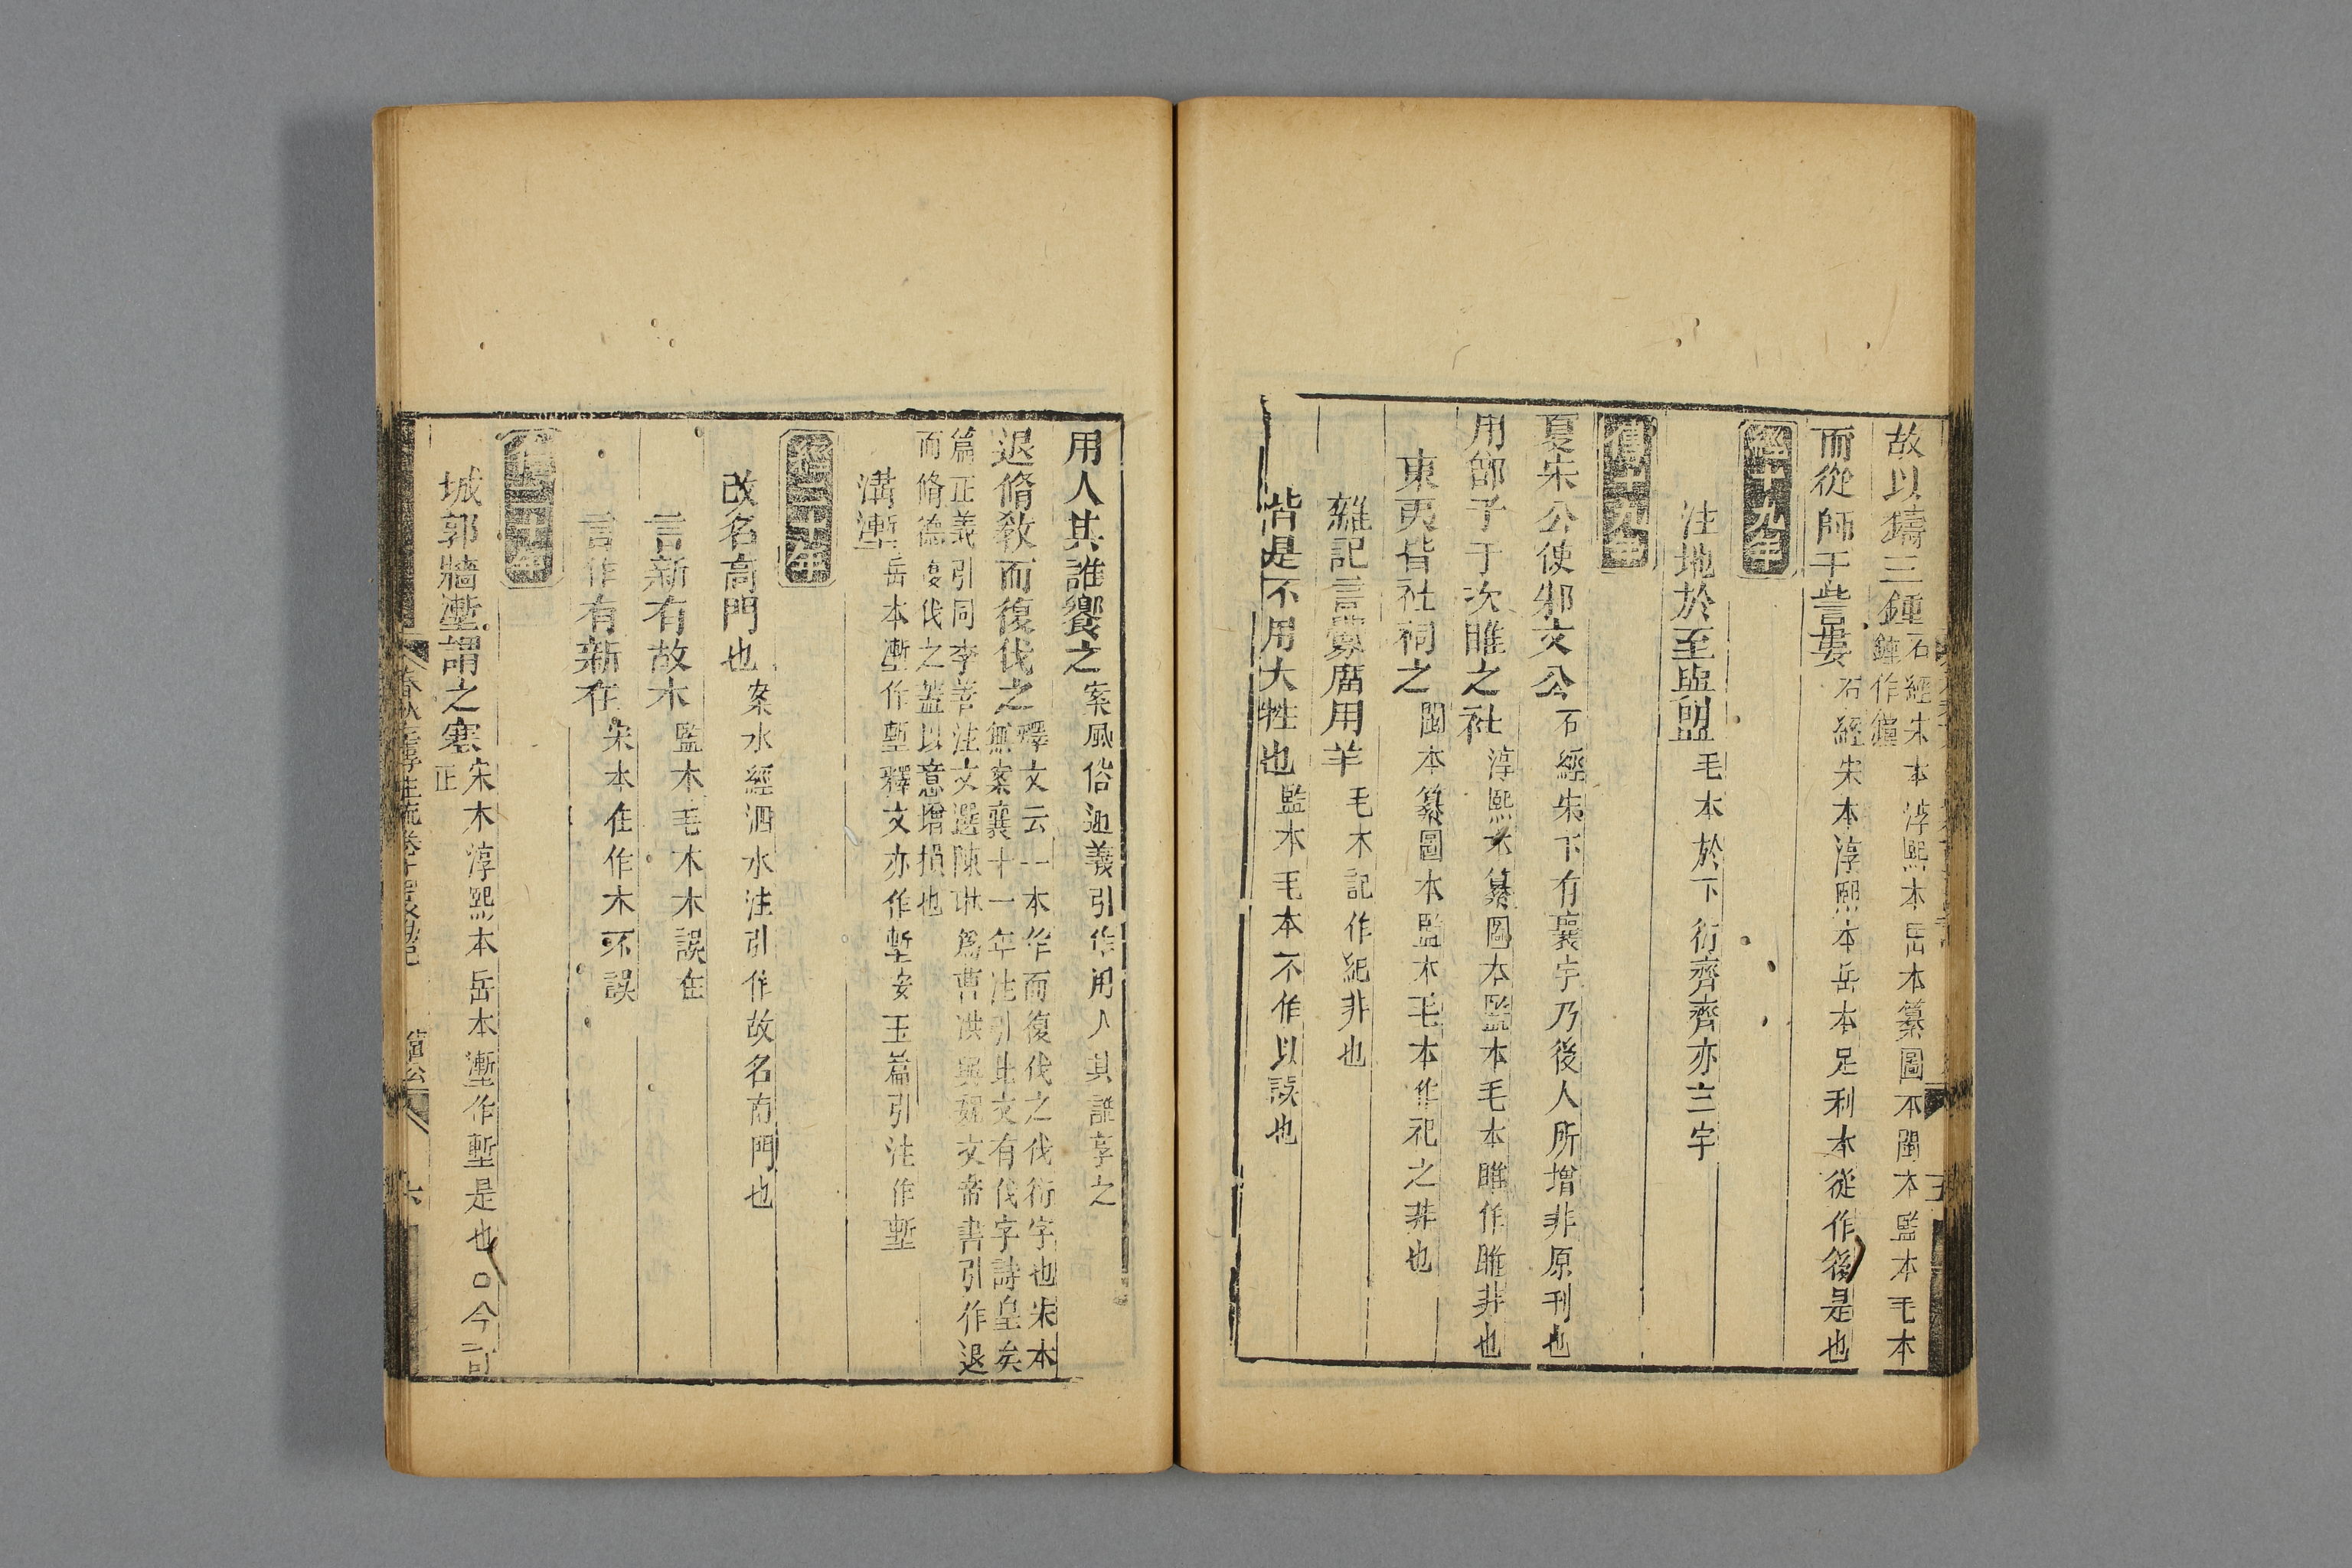 故以鑄三鍾石經宋本淳熙本岳本纂圖本閩本監本毛本
鍾作鐘
而從師于訾婁石經宋本淳熙本岳本足利本從作後是也
經十九年
注地於至與盟毛本於下衍齊齊亦三字
傳十九年
夏宋公使邾文公石經宋下有襄字乃後人所增非原刊也
用鄫子于次睢之社淳熙本纂圖本監本毛本睢作雎非也
東夷皆社祠之閩本纂圖本監本毛本作祀之非也
雜記言釁廟用羊毛本記作紀非也
皆是不用大牲也監本毛本不作以誤也
用人其誰饗之案風俗通義引作用人其誰享之
退脩教而復伐之釋文云一本作而復伐之伐衍字也宋本
無案襄十一年注引此文有伐字詩皇矣
篇正義引同李善注文選陳琳爲曹洪與魏文帝書引作退
而脩德復伐之蓋以意增損也
溝塹岳本塹作塹釋文亦作塹安玉篇引注作塹
經二十年
改名高門也案水經泗水注引作故名高門也
言新有故木監本毛本木誤在
言作有新在宋本在作木不誤
傳二十年
城郭牆塹謂之塞宋本淳熙本岳本塹作塹是也○今訂
正
春秋左傳注疏卷十四校勘記
僖公
六